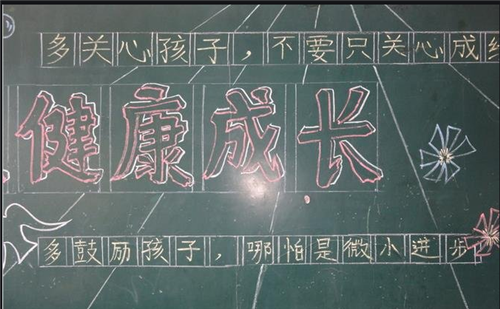 多关心孩子，不要只关心成
健康成长
多鼓励孩子，哪怕是微小进步